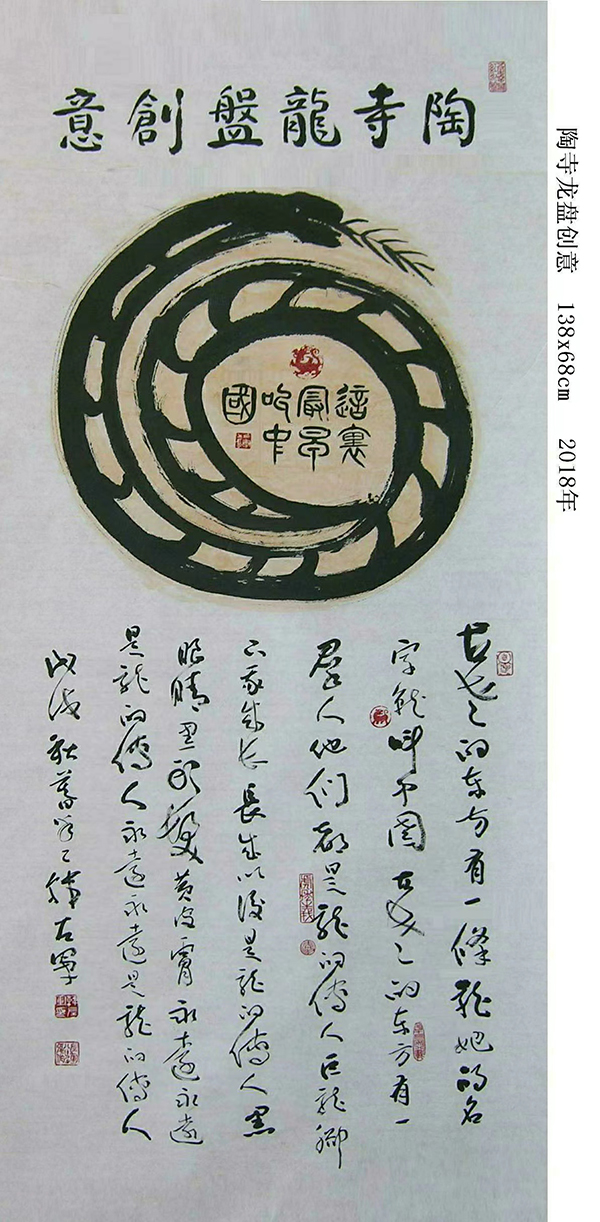 陶寺龍盤創意
這裏
最早
叫中
國
古老々的东方有一條龍她的名
字就叫中國古老々的东方有一
羣人他們都是龍的傳人巨龍腳
下我成长長成以後是龍的傳人黑
眼睛黑头髮黄皮膚永遠永遠
是龍的傳人永遠永遠是龍的傳人
戊戌秋暮韓左軍
陶寺龙盘创意 138x68cm 2018年